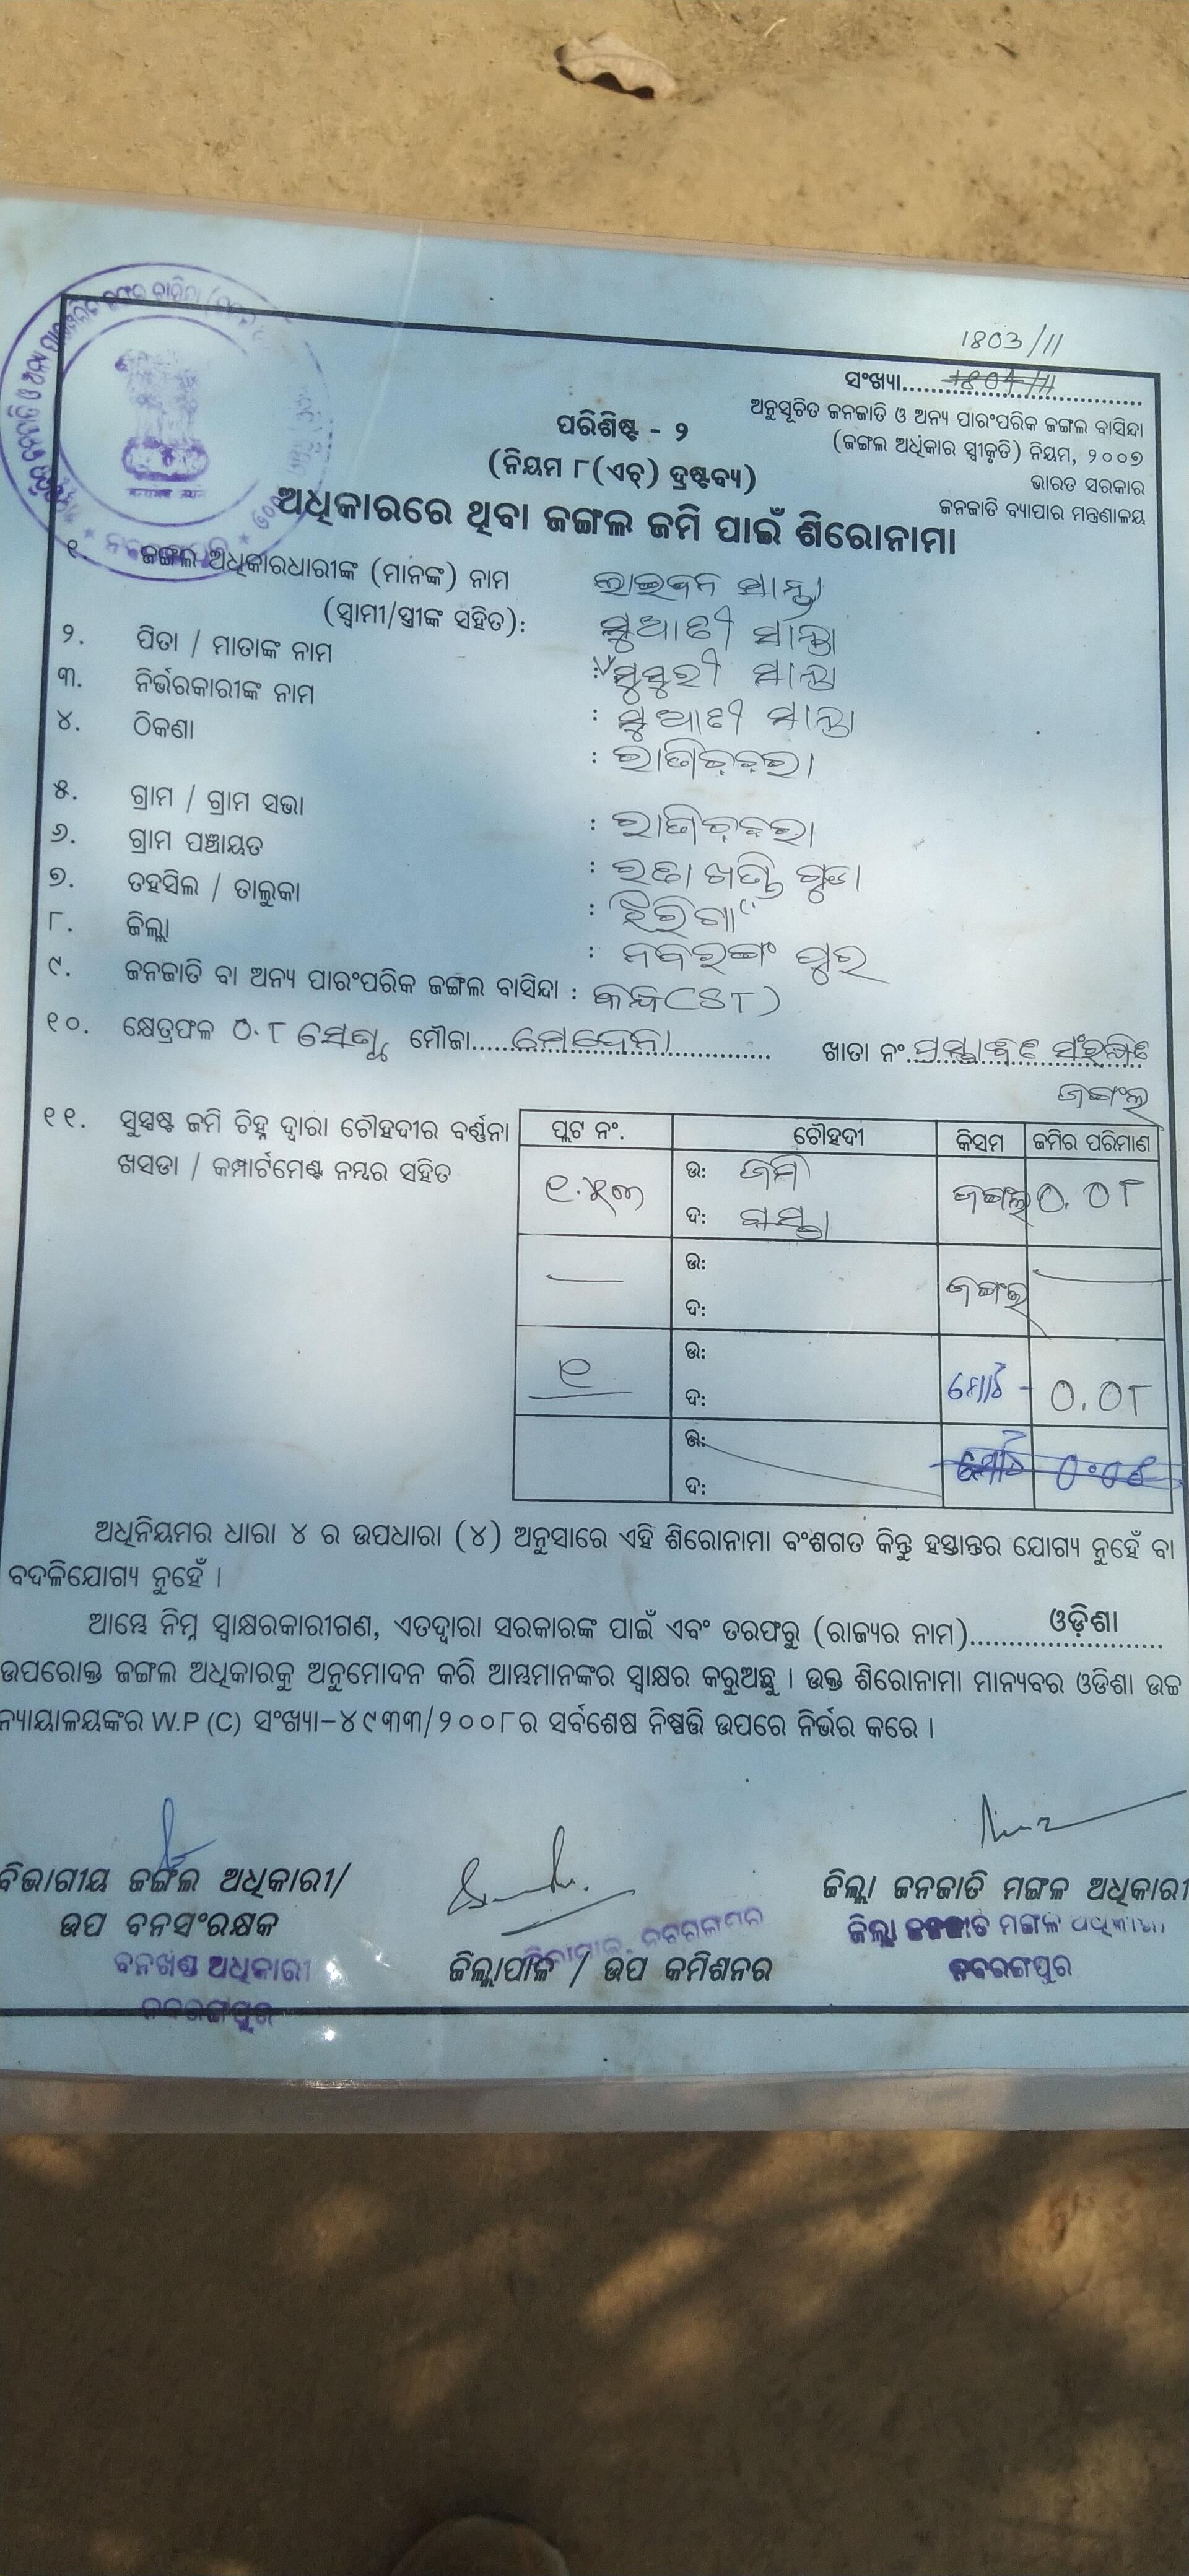 1803/11
ସଂଖ୍ୟା..... 1804/11
ଅନୁସୂଚିତ ଜନଜାତି ଓ ଅନ୍ୟ ପାରଂପରିକ ଜଙ୍ଗଲ ବାସିନ୍ଦା
(ଜଙ୍ଗଲ ଅଧିକାର ସ୍ୱୀକୃତି) ନିୟମ, ୨୦୦୭
ଭାରତ ସରକାର
ଜନଜାତି ବ୍ୟାପାର ମନ୍ତ୍ରଣାଳୟ
ପରିଶିଷ୍ଟ - ୨
(ନିୟମ ୮(ଏଚ୍) ଦ୍ରଷ୍ଟବ୍ୟ)
ଅଧିକାରରେ ଥିବା ଜଙ୍ଗଲ ଜମି ପାଇଁ ଶିରୋନାମା
୧. ଜଙ୍ଗଲ ଅଧିକାରଧାରୀଙ୍କ (ମାନଙ୍କ) ନାମ
(ସ୍ୱାମୀ/ସ୍ତ୍ରୀଙ୍କ ସହିତ):
୨. ପିତା / ମାତାଙ୍କ ନାମ
୩. ନିର୍ଭରକାରୀଙ୍କ ନାମ :
୪. ଠିକଣା :
୫. ଗ୍ରାମ / ଗ୍ରାମ ସଭା :
୬. ଗ୍ରାମ ପଞ୍ଚାୟତ :
୭. ତହସିଲ / ତାଲୁକା : ଝରିଗାଁ
୮. ଜିଲ୍ଲା : ନବରଙ୍ଗ ପୁର
୯. ଜନଜାତି ବା ଅନ୍ୟ ପାରଂପରିକ ଜଙ୍ଗଲ ବାସିନ୍ଦା : କନ୍ଧ (ST)
୧୦. କ୍ଷେତ୍ରଫଳ ୦.୮ ମୌଜା..... ଖାତା ନଂ. ପ୍ରସ୍ତାବିତ ସଂରକ୍ଷିତ
ଜଙ୍ଗଲ
୧୧. ସୁସ୍ପଷ୍ଟ ଜମି ଚିହ୍ନ ଦ୍ୱାରା ଚୌହଦୀର ବର୍ଣ୍ଣନା
ଖସଡା / କମ୍ପାର୍ଟମେଣ୍ଟ ନମ୍ବର ସହିତ
ପ୍ଲଟ ନଂ. ଚୌହଦୀ କିସମ ଜମିର ପରିମାଣ
ଉ: ଜମି ଜଙ୍ଗଲ ୦.୦୮
ଦ: ରାସ୍ତା
ଉ: ଜଙ୍ଗଲ
ଦ:
୧ ଉ: ମୋଟ - ୦.୦୮
ଦ:
ଉ:
ଦ:
ଅଧିନିୟମର ଧାରା ୪ ର ଉପଧାରା (୪) ଅନୁସାରେ ଏହି ଶିରୋନାମା ବଂଶଗତ କିନ୍ତୁ ହସ୍ତାନ୍ତର ଯୋଗ୍ୟ ନୁହେଁ ବା
ବଦଳିଯୋଗ୍ୟ ନୁହେଁ ।
ଆମ୍ଭେ ନିମ୍ନ ସ୍ୱାକ୍ଷରକାରୀଗଣ, ଏତଦ୍ୱାରା ସରକାରଙ୍କ ପାଇଁ ଏବଂ ତରଫରୁ (ରାଜ୍ୟର ନାମ)..... ଓଡ଼ିଶା
ଉପରୋକ୍ତ ଜଙ୍ଗଲ ଅଧିକାରକୁ ଅନୁମୋଦନ କରି ଆମ୍ଭମାନଙ୍କର ସ୍ୱାକ୍ଷର କରୁଅଛୁ । ଉକ୍ତ ଶିରୋନାମା ମାନ୍ୟବର ଓଡିଶା ଉଚ୍ଚ
ନ୍ୟାୟାଳୟଙ୍କର W.P (C) ସଂଖ୍ୟା-୪୯୩୩/୨୦୦୮ର ସର୍ବଶେଷ ନିଷ୍ପତ୍ତି ଉପରେ ନିର୍ଭର କରେ ।
ବିଭାଗୀୟ ଜଙ୍ଗଲ ଅଧିକାରୀ/
ଉପ ବନସଂରକ୍ଷକ
ବନଖଣ୍ଡ ଅଧିକାରୀ
ନବରଙ୍ଗପୁର
ଜିଲ୍ଲାପାଳ / ଉପ କମିଶନର
ଜିଲ୍ଲା ଜନଜାତି ମଙ୍ଗଳ ଅଧିକାରୀ
ଜିଲ୍ଲା ଜନଜାତି ମଙ୍ଗଳ ଅଧିକାରୀ
ନବରଙ୍ଗପୁର